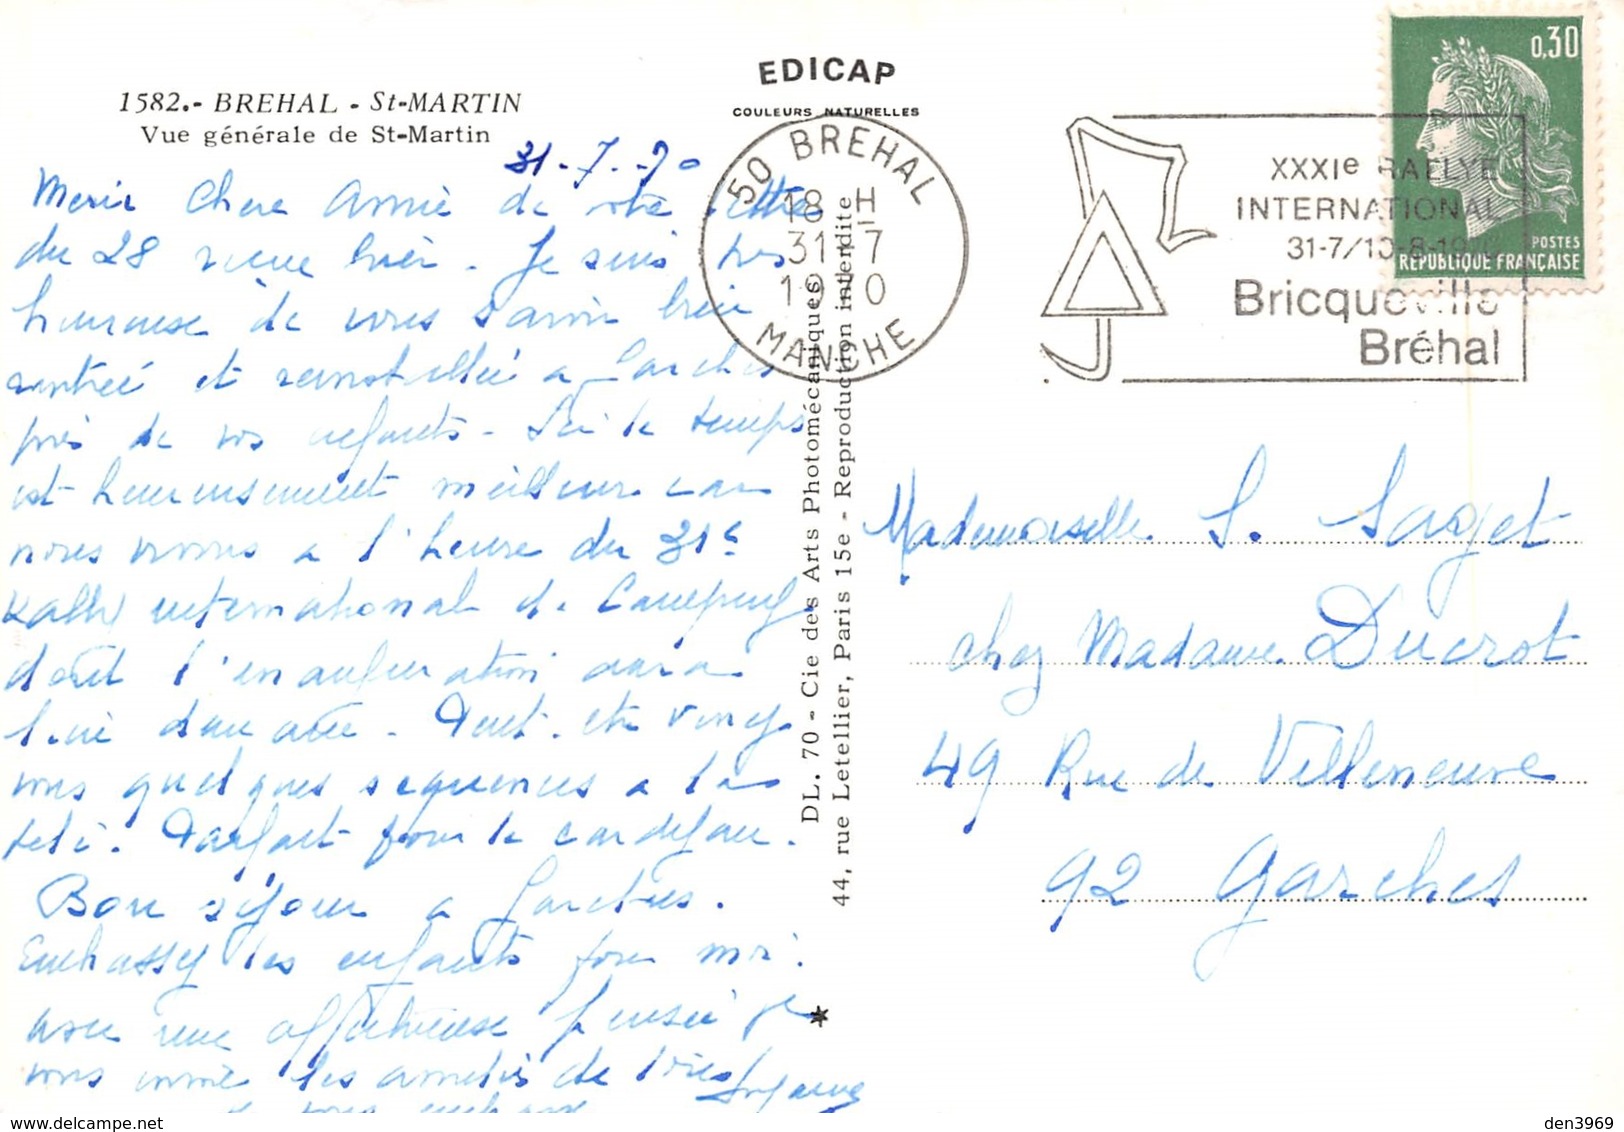 1582.- BREHAL - St-MARTIN
Vue générale de St-Martin
EDICAP
COULEURS NATURELLES
31-7-70
Merci Chère Amie de votre lettre
du 28 reçue hier. Je suis très
heureuse de vous savoir bien
rentrée et réinstallée à Garches
près de vos enfants. Ici le temps
est heureusement meilleur car
nous vivons à l'heure du 31e
Rallye international de Camping
dont l'inauguration aura
lieu dimanche. Peut-être verrez
vous quelques séquences à la
télé. Parfait pour le cardigan.
Bon séjour à Garches.
Embrassez les enfants pour moi.
avec une affectueuse pensée je
vous envoie les amitiés de tous
50 BREHAL
18 H
31-7
1970
MANCHE
XXXIe RALLYE
INTERNATIONAL
31-7/10-8-1970
Bricqueville
Bréhal
0,30
POSTES
RÉPUBLIQUE FRANÇAISE
DL. 70 - Cie des Arts Photomécaniques
44, rue Letellier, Paris 15e - Reproduction interdite
Mademoiselle S. Saget
chez Madame Ducrot
49 Rue de Villeneuve
92 Garches
den3969